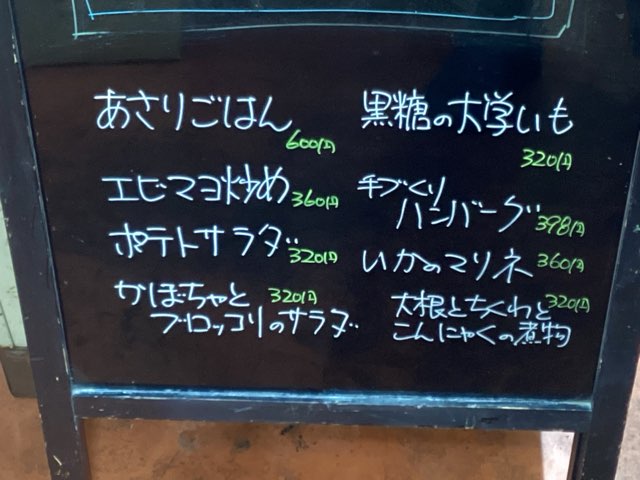 あさりごはん
600円
エビマヨ炒め 360円
ポテトサラダ 320円
かぼちゃと 320円
ブロッコリのサラダ
黒糖の大学いも
320円
手づくり
ハンバーグ 398円
いかのマリネ 360円
大根とちくわと 320円
こんにゃくの煮物